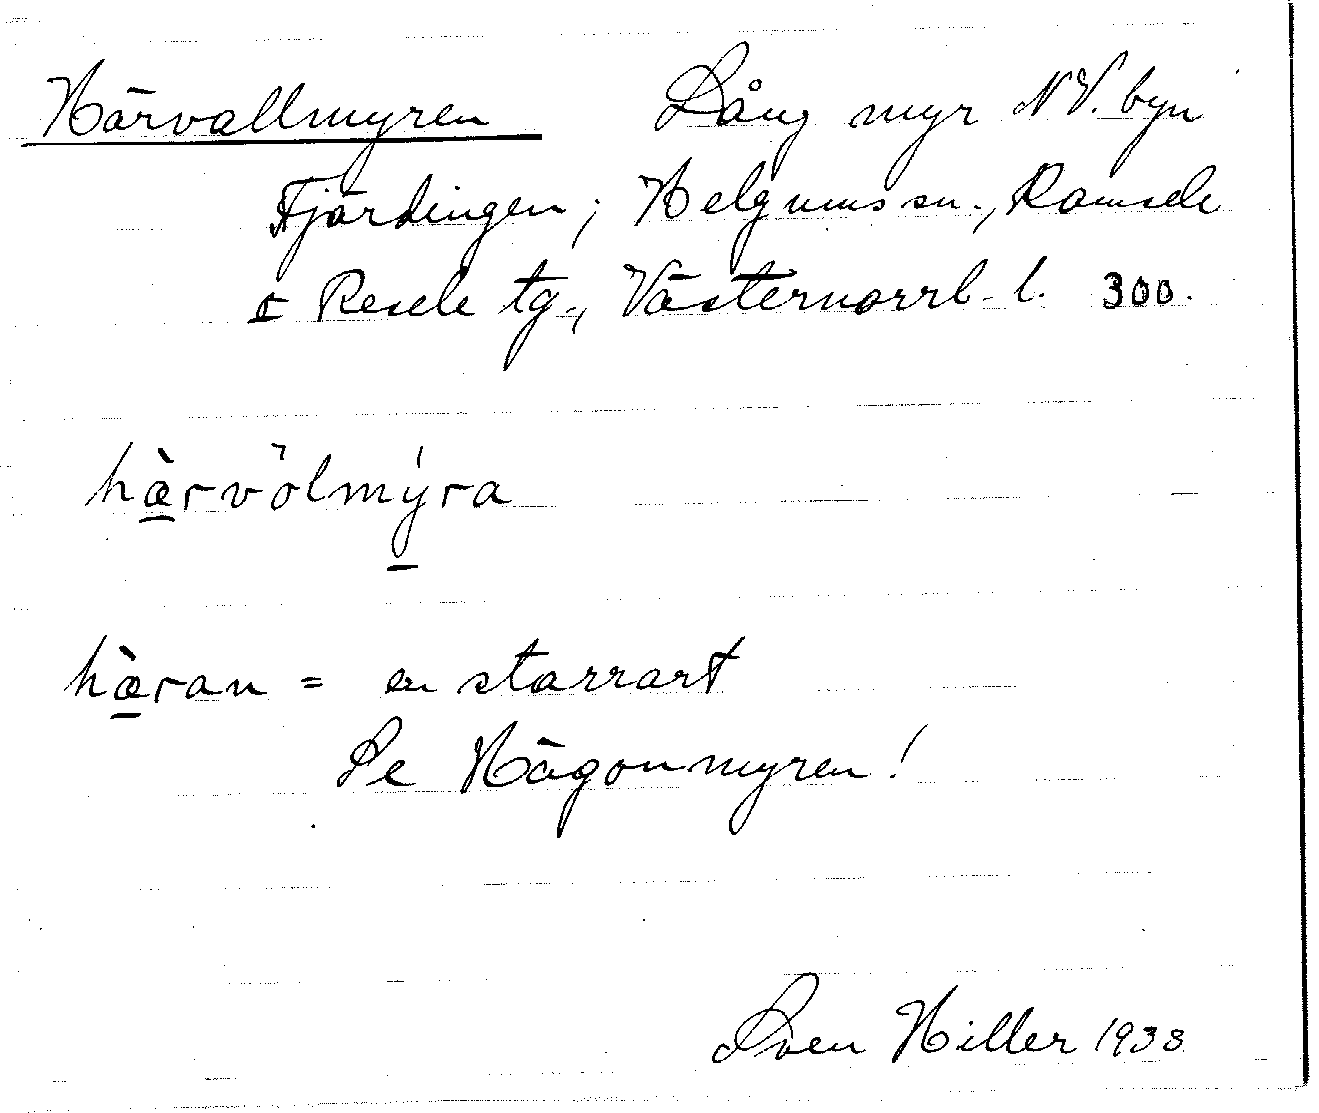 Härvallmyren Lång myr NV. byn
Fjärdingen; Helgums sn., Ramsele
o Resele tg., Västernorrl. l. 300.
hà̱rvölmý̱ra
hà̱ran = en starrart
Se Hägonmyren!
Sven Hiller 1938